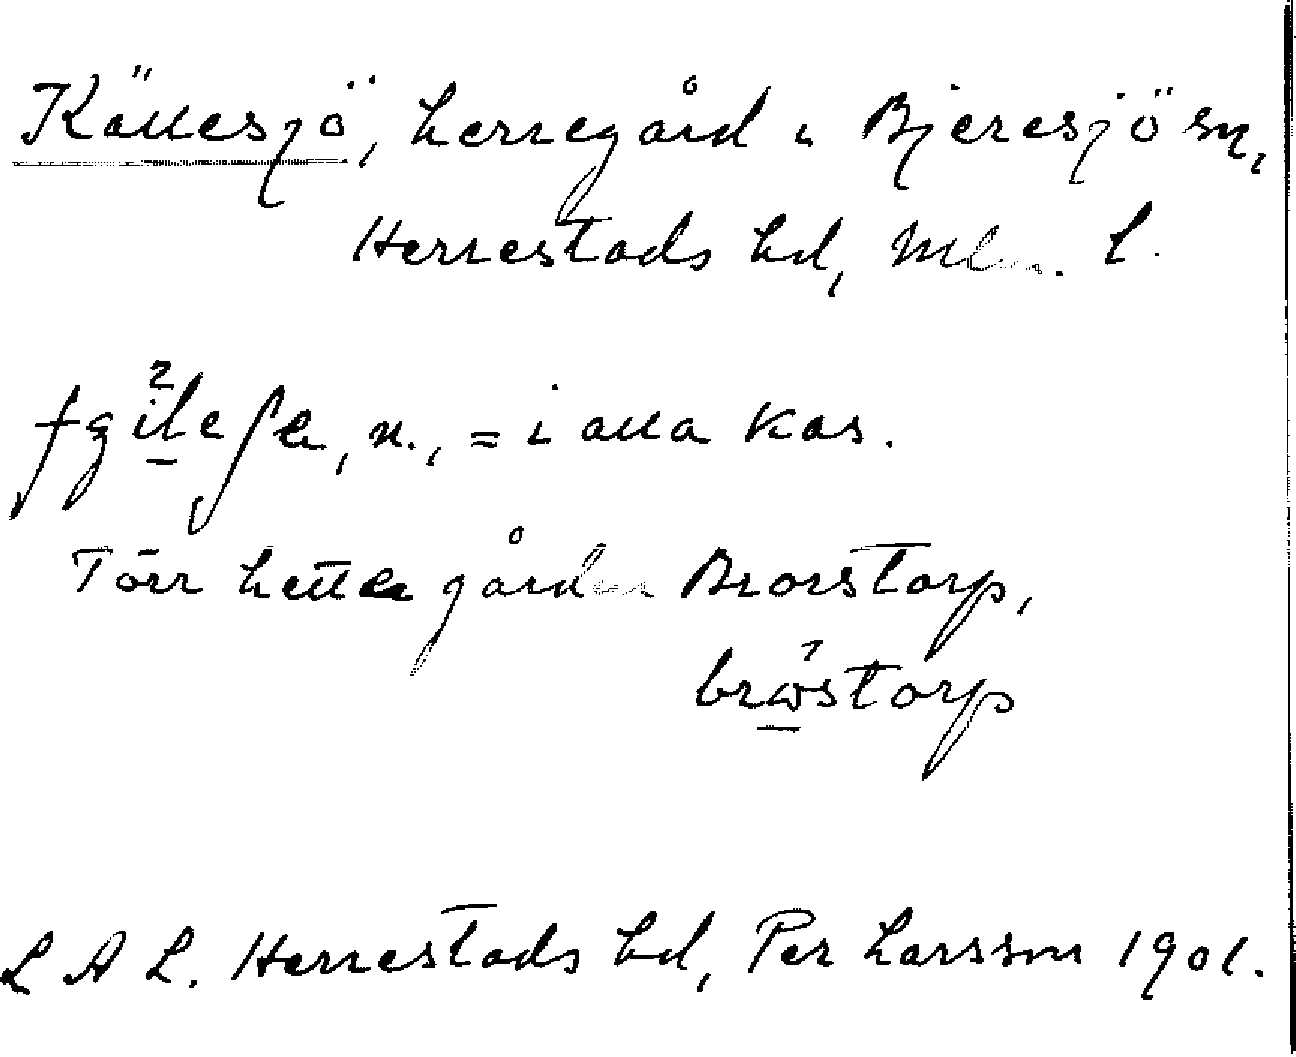 Källesjö, herregård i Bjeresjö sn,
Herrestads hd, Mlm. L.
n., = i alla kas.
Förr hette gården Brorstorp,
brωstorp
L A L. Herrestads hd, Per Larsson 1901.